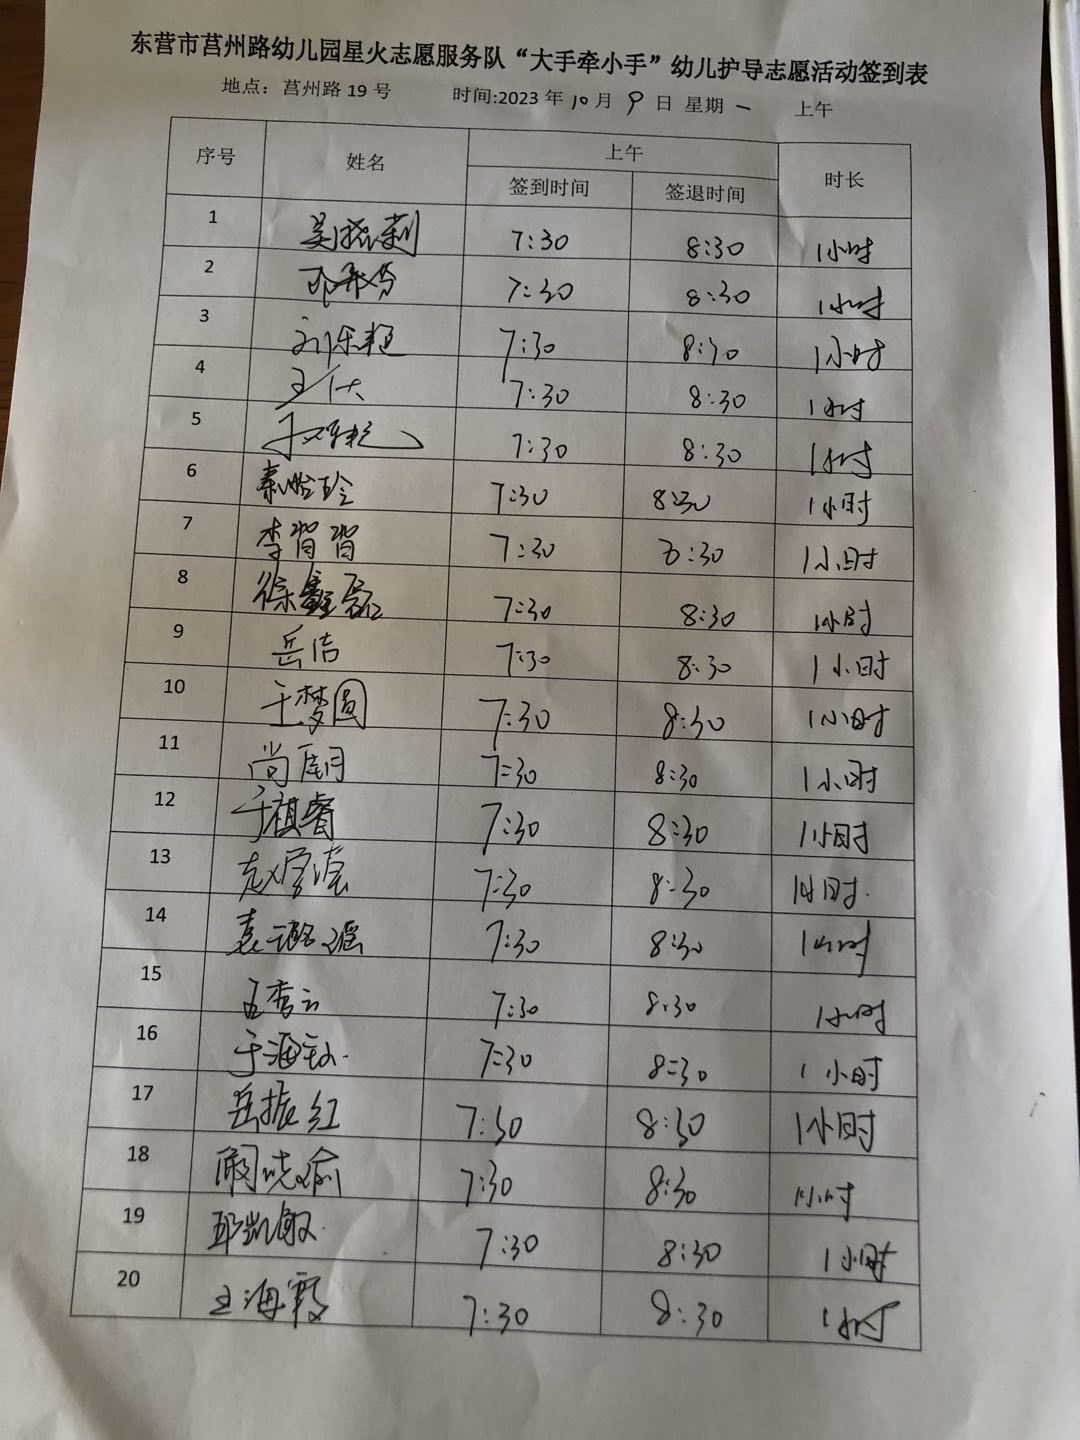 东营市莒州路幼儿园星火志愿服务队“大手牵小手”幼儿护导志愿活动签到表
地点：莒州路 19 号 时间:2023 年 10 月 9 日 星期 一 上午
序号 姓名 上午 时长
签到时间 签退时间
1 7:30 8:30 1小时
2 7:30 8:30 1小时
3 7:30 8:30 1小时
4 7:30 8:30 1小时
5 7:30 8:30 1小时
6 7:30 8:30 1小时
7 李背背 7:30 8:30 1小时
8 徐 7:30 8:30 1小时
9 岳洁 7:30 8:30 1小时
10 王梦圆 7:30 8:30 1小时
11 尚 7:30 8:30 1小时
12 于祺睿 7:30 8:30 1小时
13 赵 7:30 8:30 1小时
14 袁璐瑶 7:30 8:30 1小时
15 7:30 8:30 1小时
16 于海 7:30 8:30 1小时
17 岳振红 7:30 8:30 1小时
18 晓瑜 7:30 8:30 1小时
19 凯敏 7:30 8:30 1小时
20 王海霞 7:30 8:30 1小时